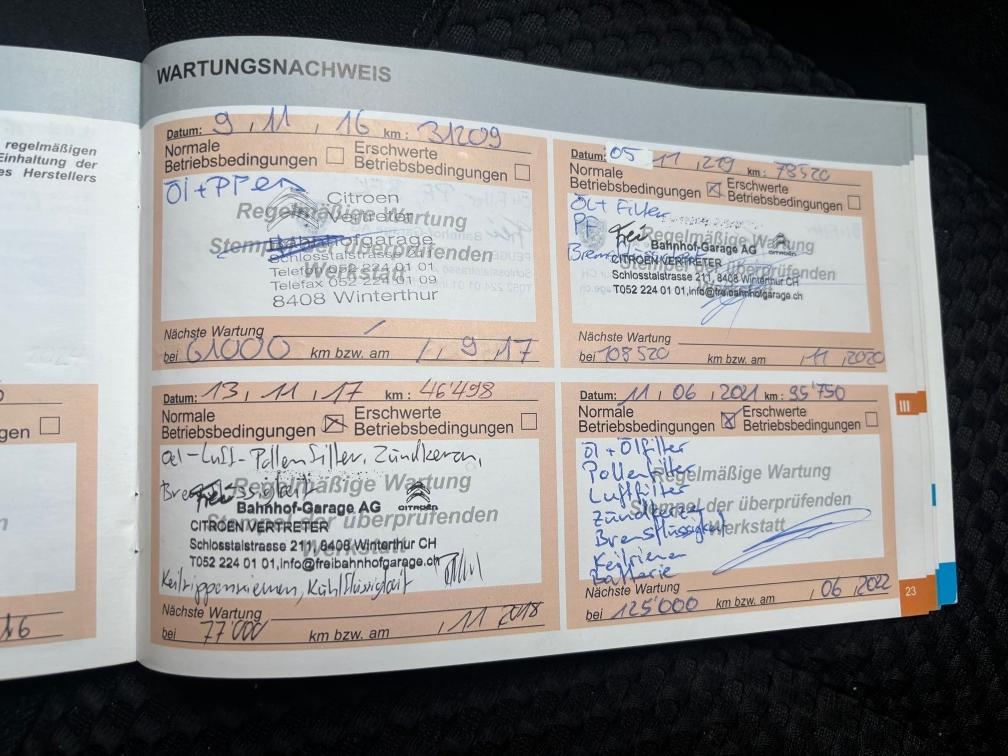 regelmäßigen
Einhaltung der
es Herstellers
gen
16
WARTUNGSNACHWEIS
Datum: 9 . 11 . 16 km : 31209
Normale
Betriebsbedingungen
Erschwerte
Betriebsbedingungen
Öl + PFen
Citroen
Vertreter
Regelmäßige Wartung
Stempel der überprüfenden
Werkstatt
Schlosstalstrasse 211
Telefon 052 224 01 01
Telefax 052 224 01 09
8408 Winterthur
Nächste Wartung
bei 61000 km bzw. am 1. 9 . 17
Datum: 13 . 11 . 17 km : 46'498
Normale
Betriebsbedingungen
Erschwerte
Betriebsbedingungen
Oel-Luft-Pollenfilter, Zündkerzen,
Bremsflüssigkeit
Regelmäßige Wartung
Frei
Bahnhof-Garage AG
CITROËN
CITROEN VERTRETER
Stempel der überprüfenden
Werkstatt
Schlosstalstrasse 211, 8408 Winterthur CH
T052 224 01 01,info@freibahnhofgarage.ch
Keilrippenriemen, Kühlflüssigkeit
Nächste Wartung
bei 77'000 km bzw. am . 11 2018
Datum: 05 11 . 219 km : 78520
Normale
Betriebsbedingungen
Erschwerte
Betriebsbedingungen
Öl + Filter
PF
Bremsflüssigkeit
Regelmäßige Wartung
Frei
Bahnhof-Garage AG
CITROËN
CITROEN VERTRETER
Stempel der überprüfenden
Werkstatt
Schlosstalstrasse 211, 8408 Winterthur CH
T052 224 01 01,info@freibahnhofgarage.ch
Nächste Wartung
bei 108520 km bzw. am . 11 . 2020
Datum: 11 . 06 . 2021 km : 95'750
Normale
Betriebsbedingungen
Erschwerte
Betriebsbedingungen
Öl + Ölfilter
Pollenfilter
Luftfilter
Zündkerzen
Bremsflüssigkeit
Keilriemen
Batterie
Regelmäßige Wartung
Stempel der überprüfenden
Werkstatt
Nächste Wartung
bei 125'000 km bzw. am . 06 . 2022
III
23